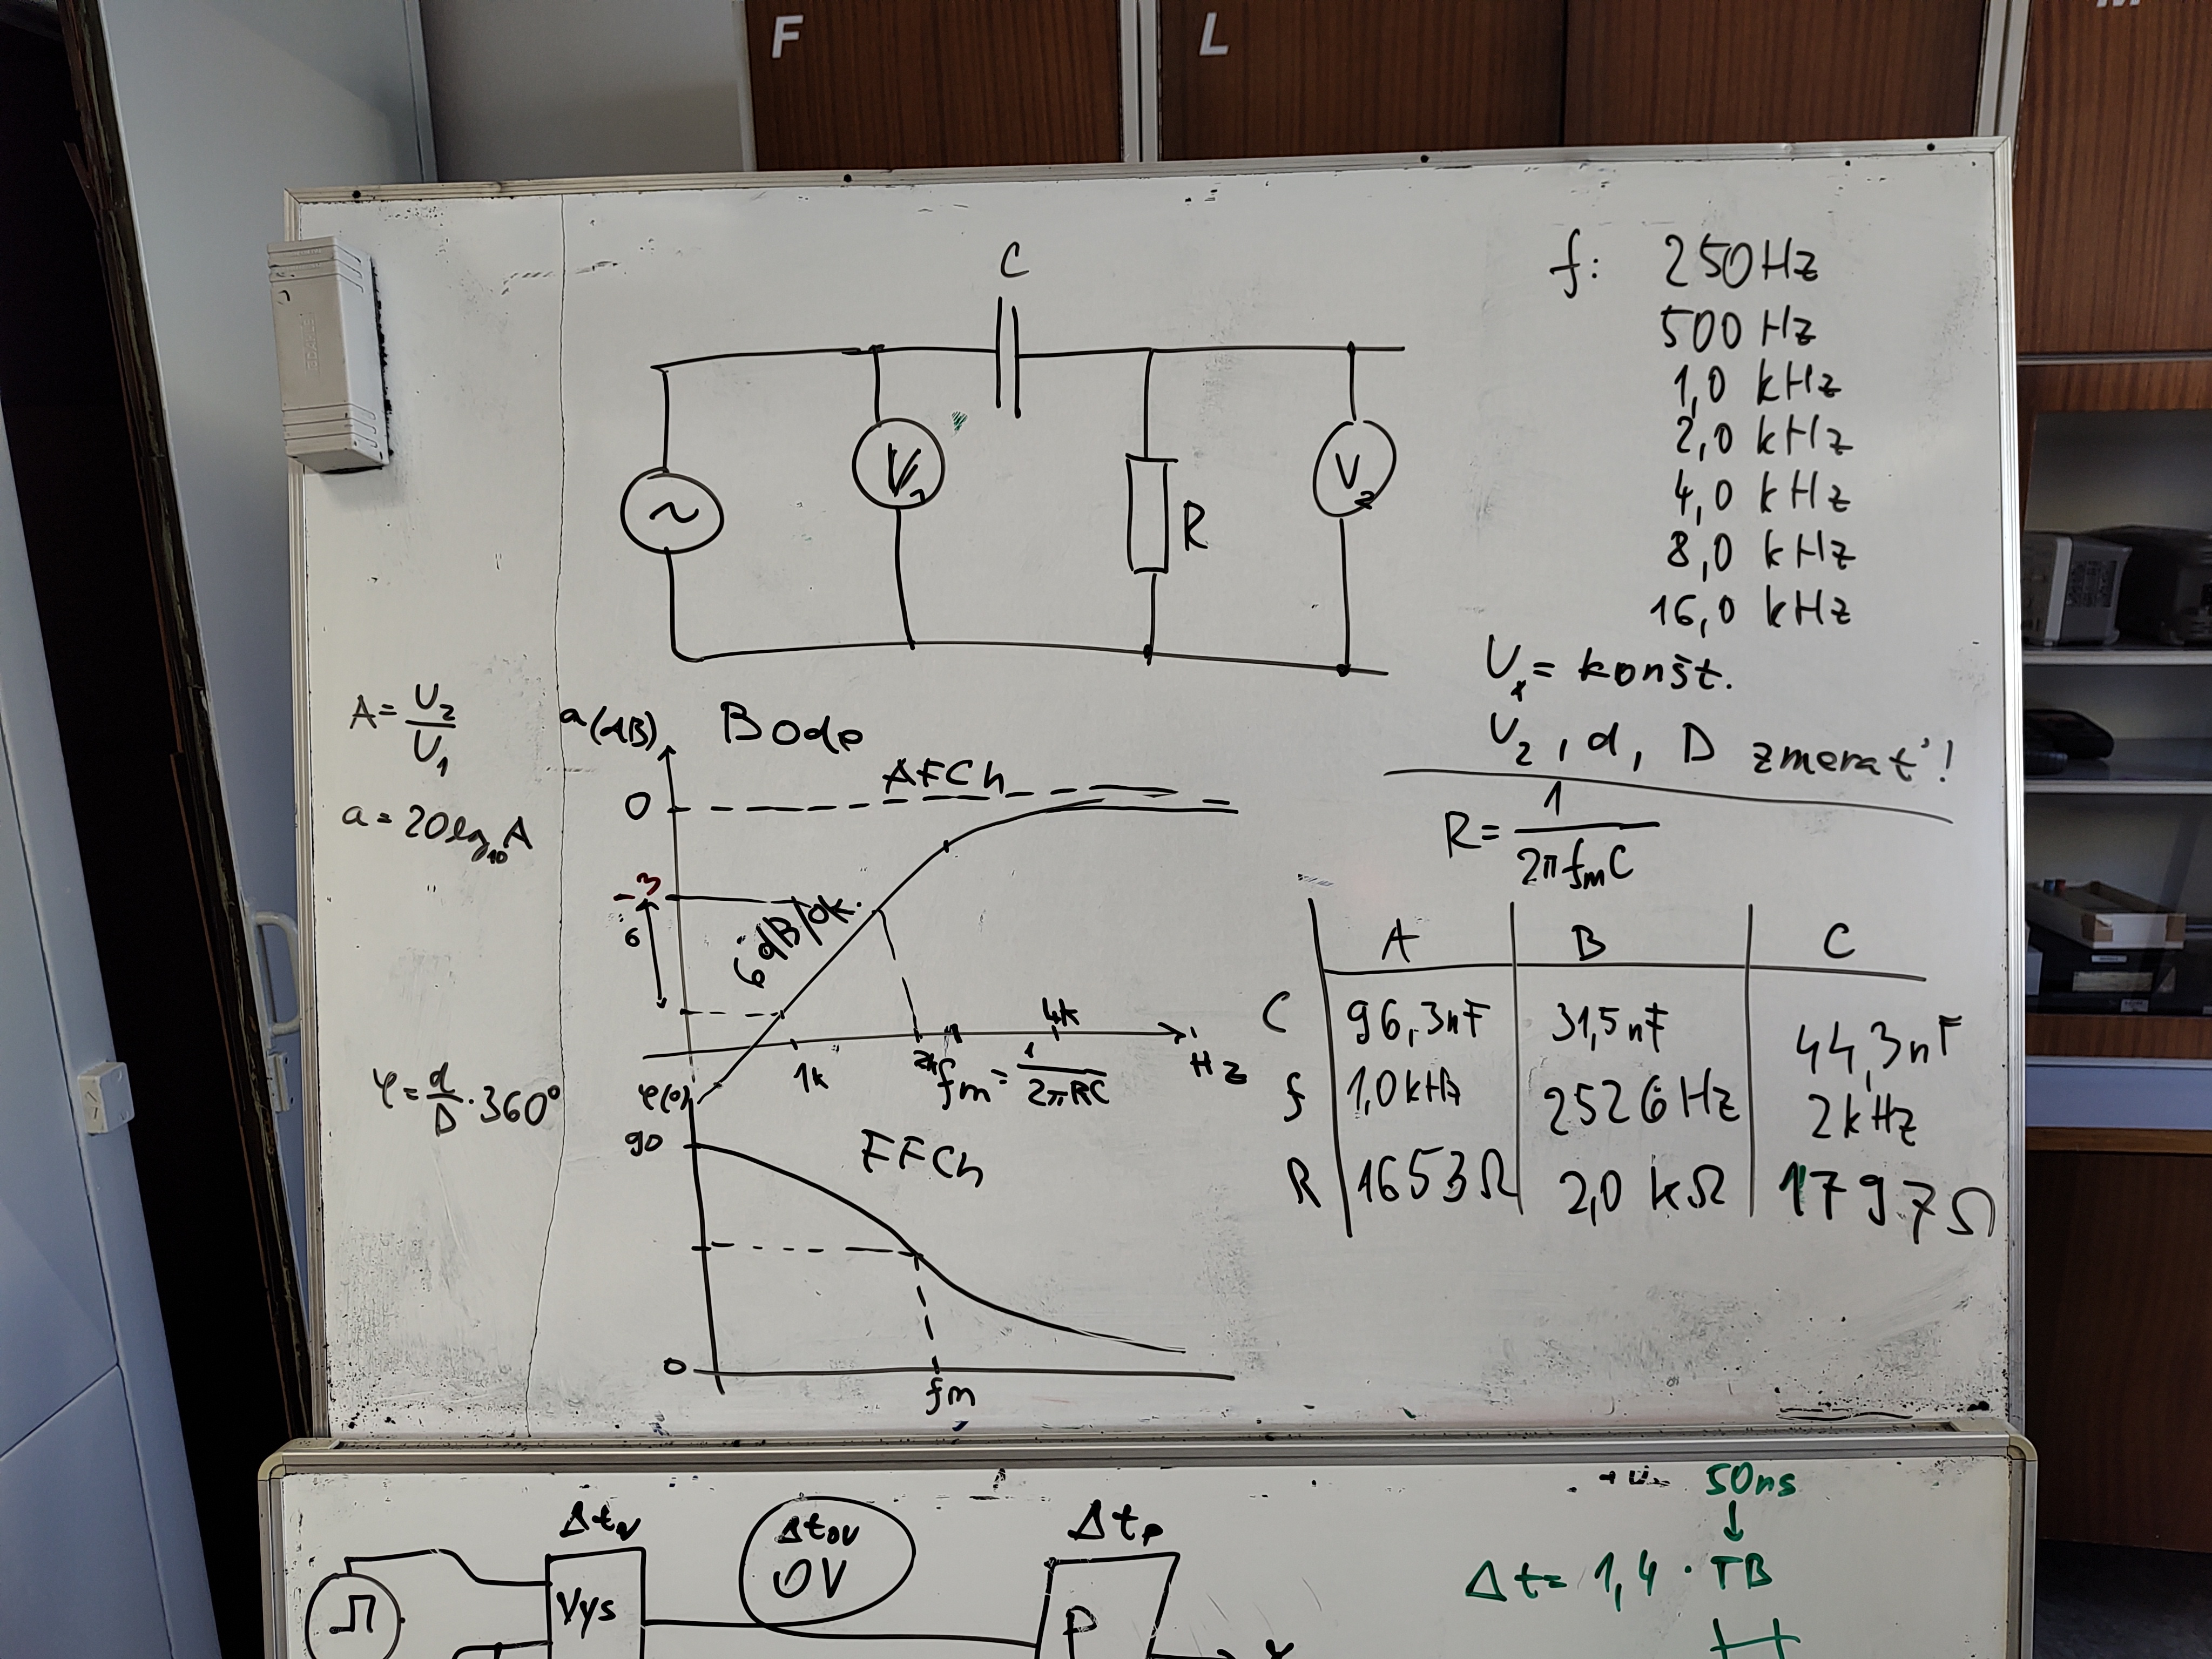 F
L
C
V₁
R
V₂
f: 250Hz
500 Hz
1,0 kHz
2,0 kHz
4,0 kHz
8,0 kHz
16,0 kHz
U₁ = konšt.
U₂, d, D zmerať!
R = 1/(2πfmC)
A = U₂/U₁
a = 20 log₁₀ A
a(dB)
Bode
AFCh
0
-3
6
6 dB/ok.
1k
2k
4k
Hz
fm = 1/(2πRC)
φ = d/D · 360°
φ(°)
90
FFCh
0
fm
A B C
C 96,3nF 31,5nF 44,3nF
f 1,0kHz 2526Hz 2kHz
R 1653Ω 2,0 kΩ 1797Ω
Δtv
Δtov
OV
Δtp
Vys
P
50ns
Δt = 1,4 · TB